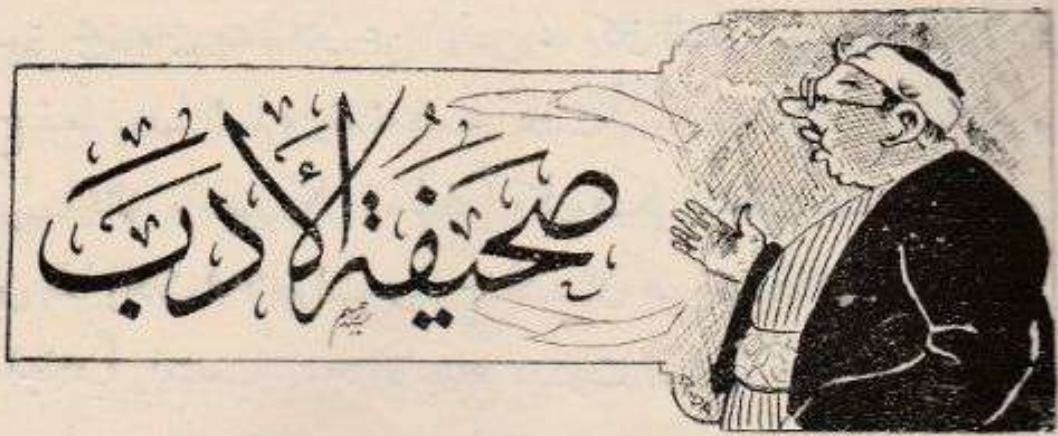 صَحِيفَةُ الأَدَبِ